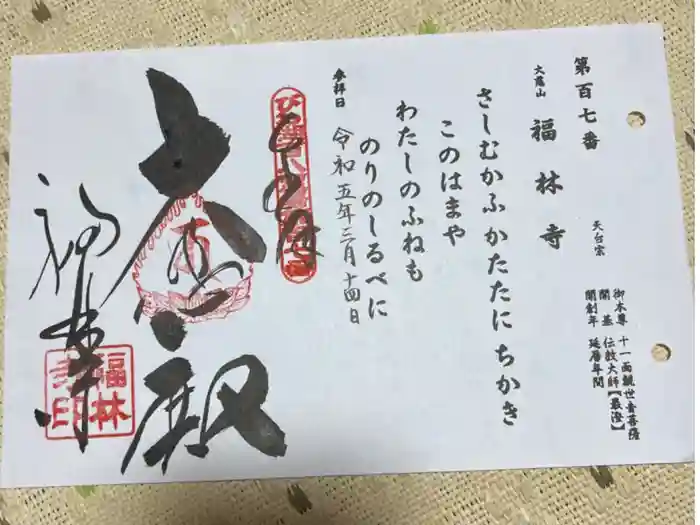 第百七番
大慈山
福林寺
天台宗
御本尊 十一面観世音菩薩
開基 伝教大師【最澄】
開創年 延暦年間
さしむかふかたたに ちかき
このはまや
わたしのふねも
のりのしるべに
参拝日
令和五年二月十四日
大悲殿
福林寺
福林
寺印